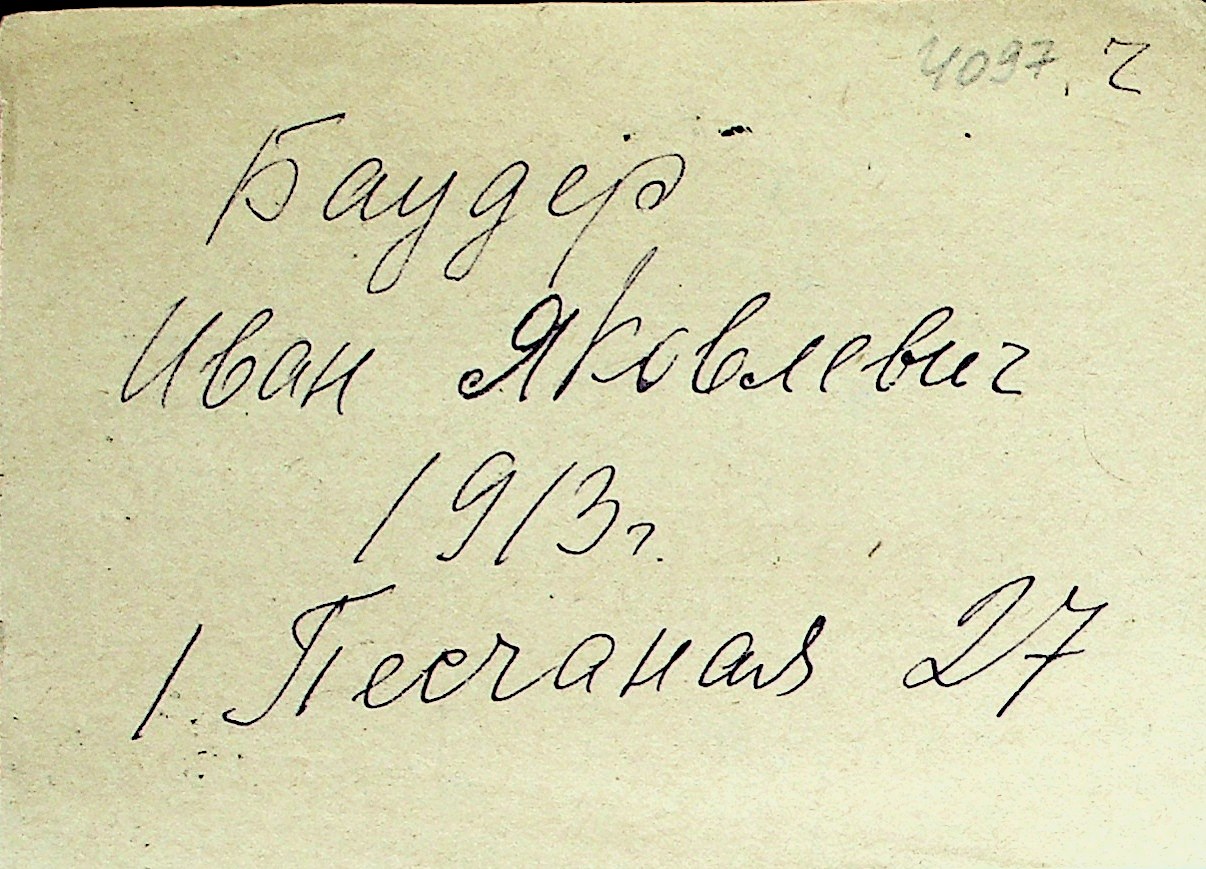 4097, ч
Баудер
Иван Яковлевич
1913г.
1. Песчаная 27